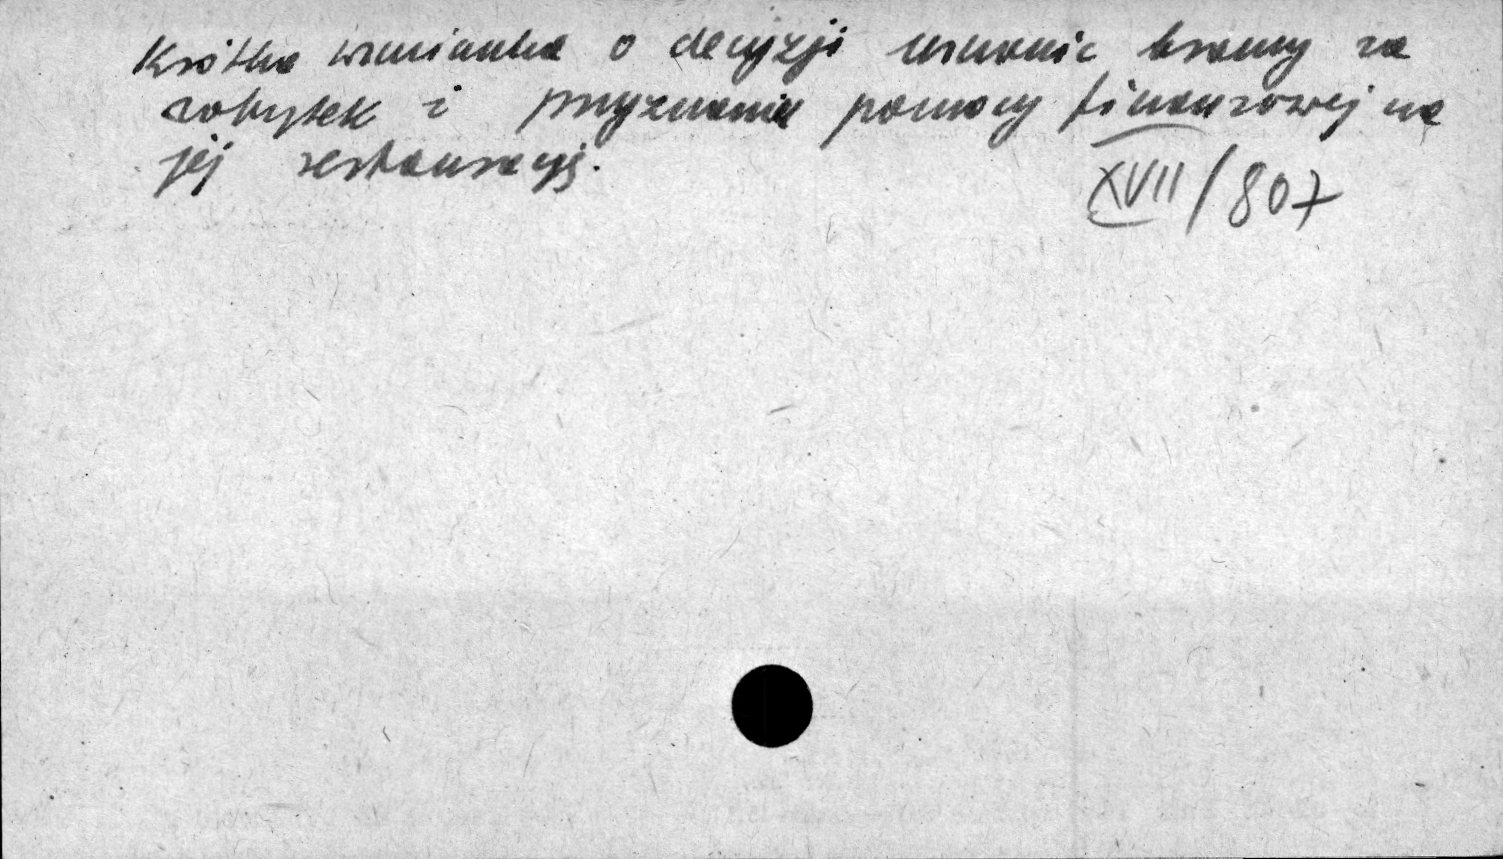 Krótka wzmianka o decyzji uznanie bramy za
zabytek i przyznaniu pomocy finansowej na
jej restaurację.
XVII/807